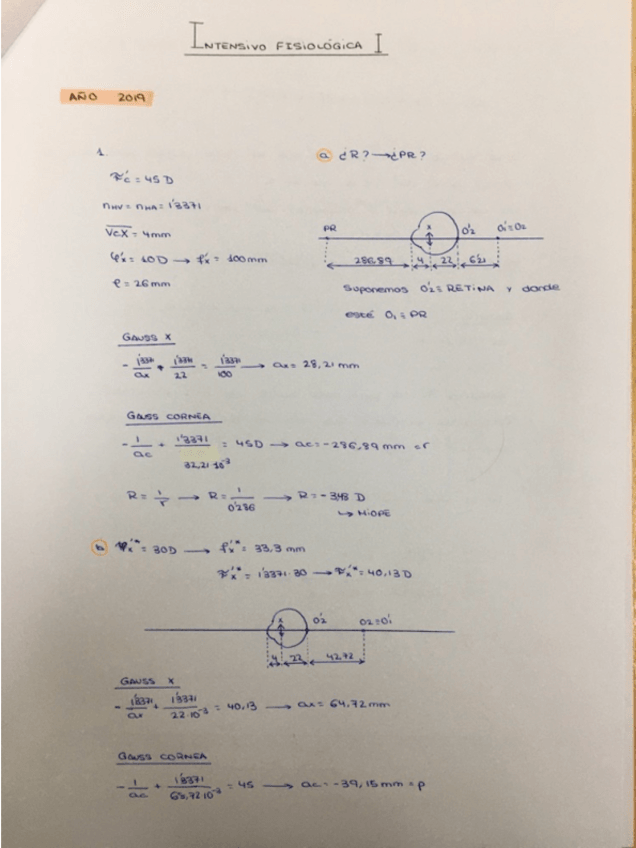 INTENSIVO FISIOLÓGICA I
AÑO 2019
1.
F'c = 45 D
nHV = nHA = 1'3371
VcX = 4mm
φ'x = 10D → f'x = 100mm
e = 26mm
a ¿R? → ¿PR?
PR x O'2 O'1 = O2
286,89 4 22 6'21
Suponemos O'2 = RETINA y donde
esté O1 = PR
GAUSS X
- 1'3371/ax + 1'3371/22 = 1'3371/100 → ax = 28,21 mm
GAUSS CORNEA
- 1/ac + 1'3371/32,21·10⁻³ = 45D → ac = -286,89 mm = r
R = 1/r → R = 1/0'286 → R = -3,48 D
↳ MIOPE
b φx'* = 30D → fx'* = 33,3 mm
Fx'* = 1'3371·30 → Fx'* = 40,13D
x O'2 O2 = O'1
4 22 42,72
GAUSS X
- 1'3371/ax + 1'3371/22·10⁻³ = 40,13 → ax = 64,72 mm
GAUSS CORNEA
- 1/ac + 1'3371/68,72·10⁻³ = 45 → ac = -39,15 mm = p